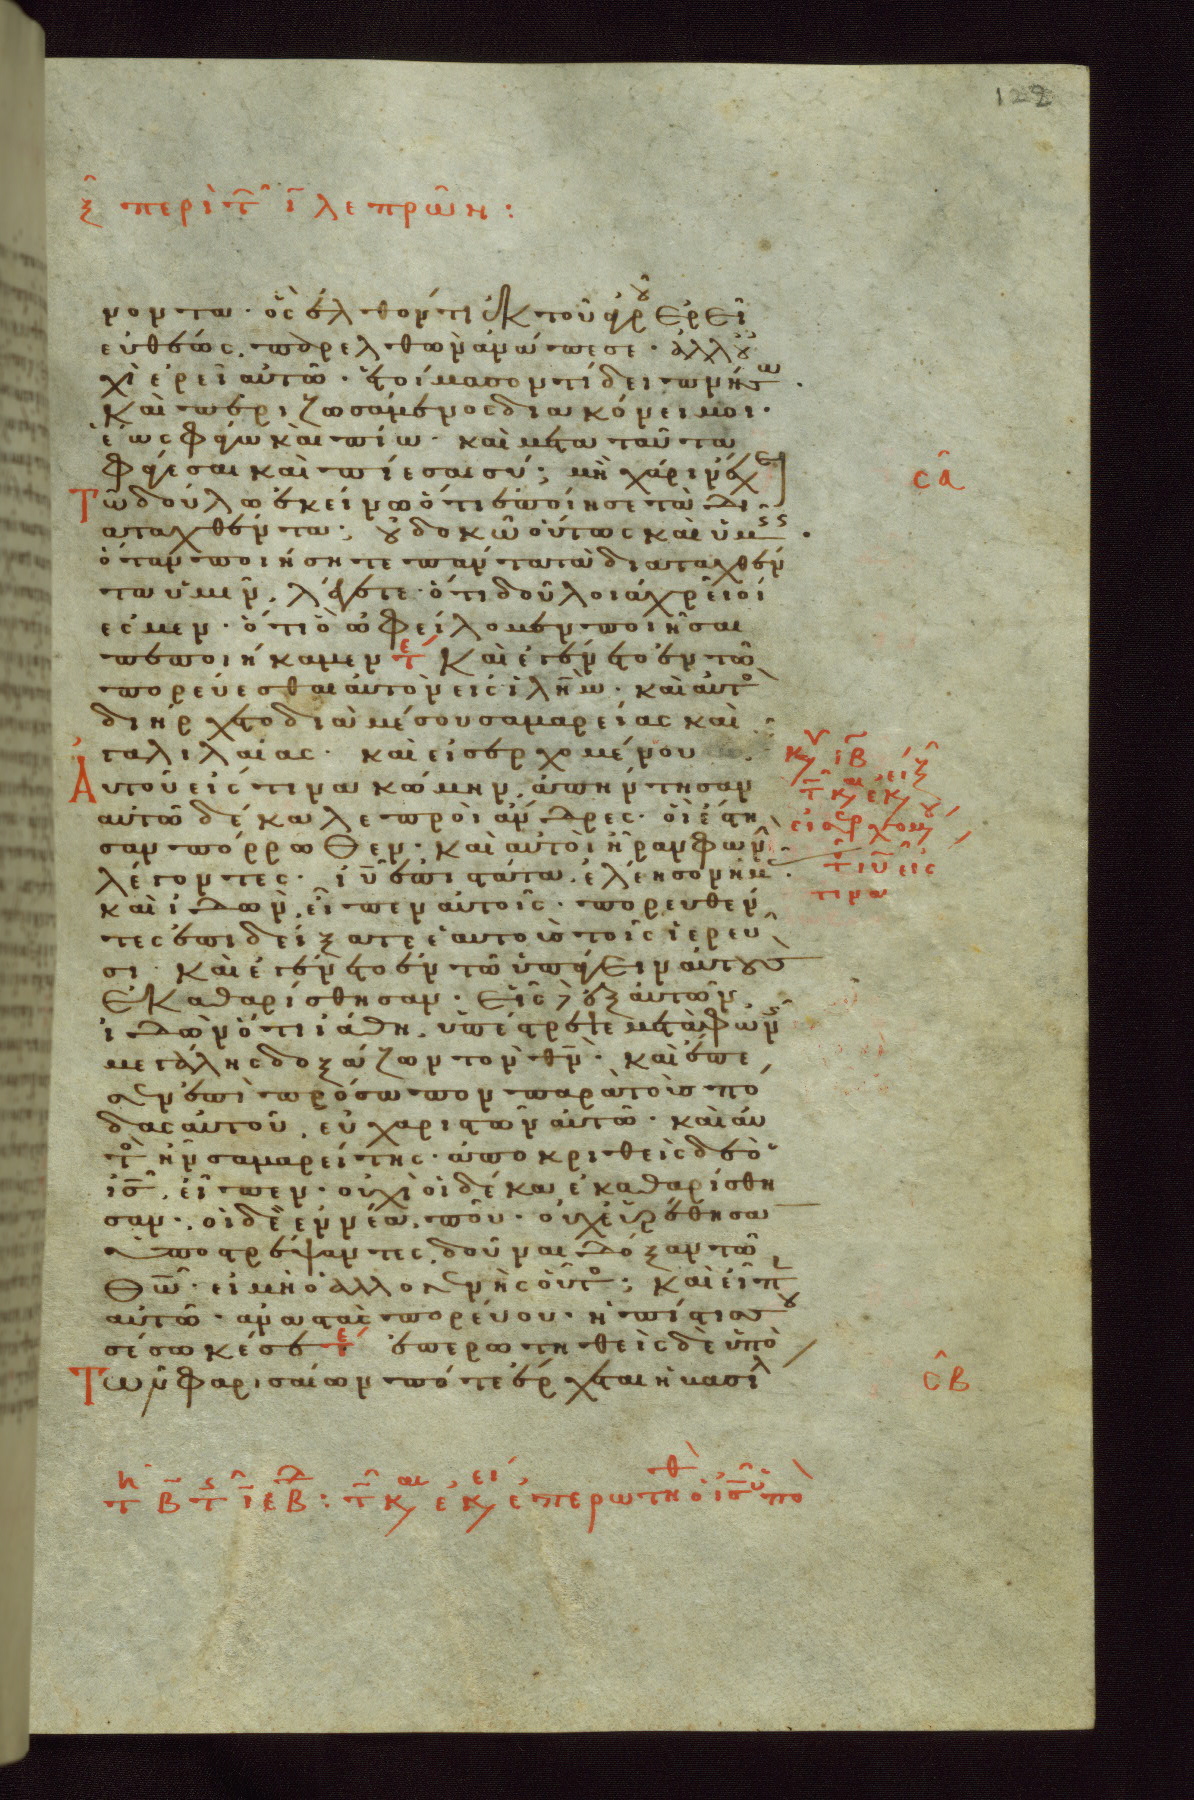 122
ξ περὶ τῶν ῑ λεπρῶν :
μοντα · ὃς ἐλθόντι ἐκ τοῦ ἀγροῦ ἐρεῖ
εὐθέως, παρελθὼν ἀνάπεσε · ἀλλ' οὐ
χὶ ἐρεῖ αὐτῶ · ἑτοίμασον τί δειπνήσω ·
καὶ περιζωσάμενος διακόνει μοι ·
ἕως φάγω καὶ πίω · καὶ μετα ταῦτα
φάγεσαι καὶ πίεσαι σύ ; μὴ χάριν ἔχει
Τῶ δούλω ἐκείνω ὅτι ἐποίησε τὰ δι
αταχθέντα ; οὐ δοκῶ οὕτως καὶ ὑμεῖς ·
σα
ὅταν ποιήσητε πάντα τὰ διαταχθέν
τα ὑμῖν, λέγετε · ὅτι δοῦλοι ἀχρεῖοί
ἐσμεν · ὅτι ὃ ὠφείλομεν ποιῆσαι
πεποιήκαμεν τε Καὶ ἐγένετο ἐν τῶ
πορεύεσθαι αὐτὸν εἰς ἰλῆμ · καὶ αὐτὸς
διήρχετο διὰ μέσου σαμαρείας καὶ
γαλιλαίας · καὶ εἰσερχομένου
Αὐτοῦ εἴς τινα κώμην, ἀπήντησαν
αὐτῶ δέκα λεπροὶ ἄνδρες · οἳ ἔστη
σαν πόρρωθεν · καὶ αὐτοὶ ἦραν φωνὴν
λέγοντες · ἰῦ ἐπιστάτα, ἐλέησον ἡμᾶς ·
κυ ιβ
τῶ και εκ
εἰσερχομ
τ ιυ εἰς
τινα
καὶ ἰδὼν, εἶπεν αὐτοῖς · πορευθέν
τες ἐπιδείξατε ἑαυτοὺς τοῖς ἱερεῦ
σι · καὶ ἐγένετο ἐν τῶ ὑπάγειν αὐτοὺς
ἐκαθαρίσθησαν · εἷς δὲ ἐξ αὐτῶν,
ἰδὼν ὅτι ἰάθη, ὑπέστρεψε μετὰ φωνῆς
μεγάλης δοξάζων τὸν θν̄ · καὶ ἔπε
σεν ἐπὶ πρόσωπον παρὰ τοὺς πό
δας αὐτοῦ, εὐχαριστῶν αὐτῶ · καὶ αὐ
τὸς ἦν σαμαρείτης · ἀποκριθεὶς δὲ ὁ
ις̄, εἶπεν · οὐχὶ οἱ δέκα ἐκαθαρίσθη
σαν · οἱ δὲ ἐννέα, ποῦ · οὐχ εὑρέθησαν
ὑποστρέψαντες, δοῦναι δόξαν τῶ
Θω̄ · εἰ μὴ ὁ ἀλλογενὴς οὗτος ; καὶ εἶπεν
αὐτῶ · ἀναστὰς πορεύου · ἡ πίστις σου
σέσωκέ σε τε ἐπερωτηθεὶς δὲ ὑπὸ
Τῶν φαρισαίων πότε ἔρχεται ἡ βασιλ
σβ
τη β τ ιε εβ : τῶ και εκει ἐπερωτηθ ὁ ις ὑπὸ